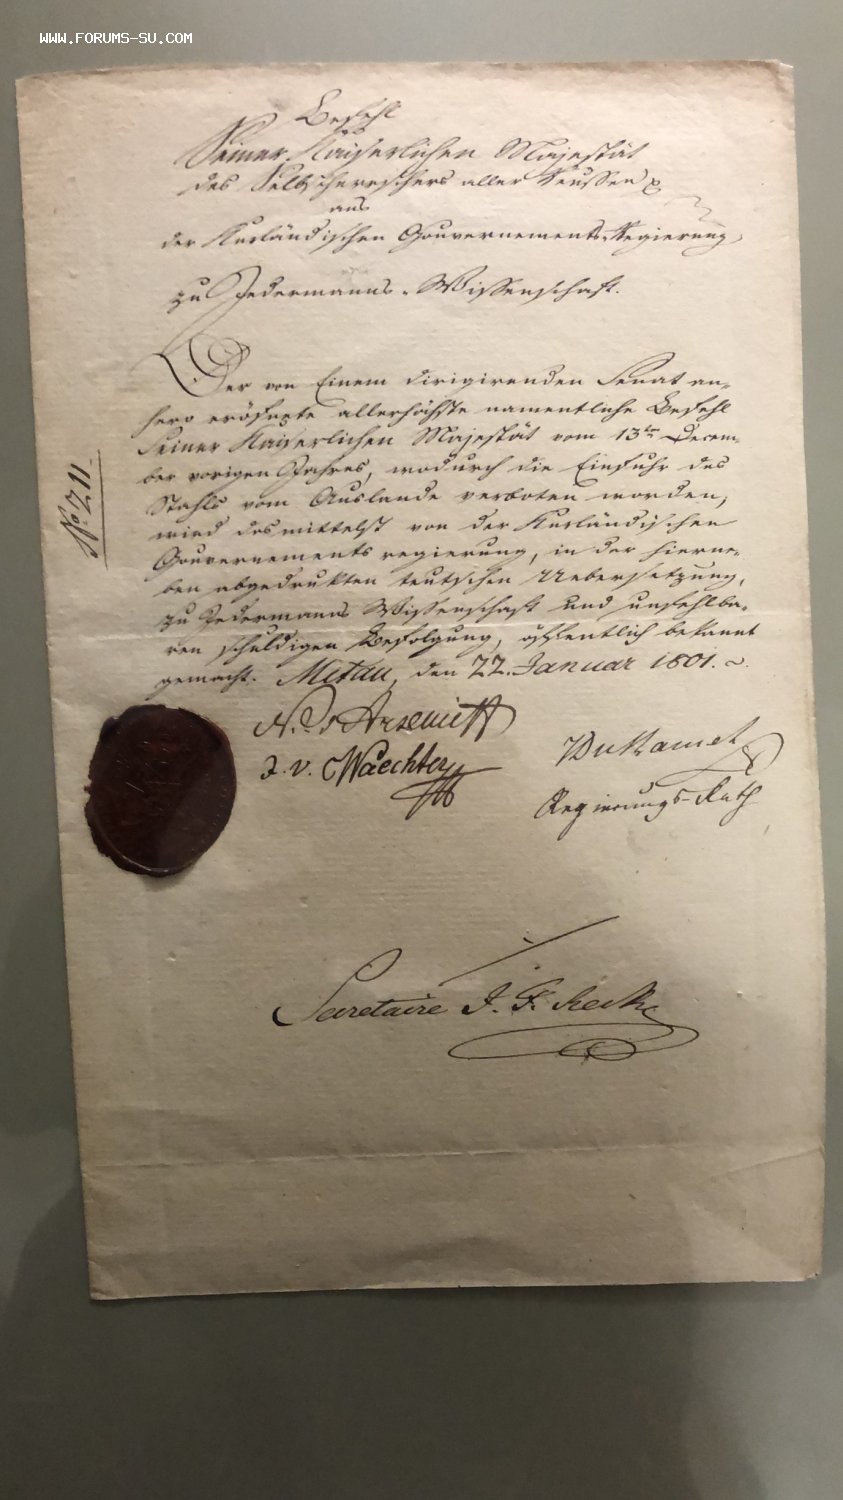 WWW.FORUMS-SU.COM
Befehl
Seiner Kaiserlichen Majestät
des Selbstherrschers aller Reussen
aus
der Kurländischen Gouvernements-Regierung,
zu Jedermanns-Wissenschaft.
Der von Einem dirigirenden Senat an-
hero eröfnete allerhöchste namentliche Befehl
Seiner Kaiserlichen Majestät vom 13ten Decem-
ber vorigen Jahres, wodurch die Einfuhr des
Stahls vom Auslande verboten worden,
wird desmittelst von der Kurländischen
Gouvernements regierung, in der hierne-
ben abgedrukten teutschen Uebersetzung,
zu Jedermanns Wissenschaft und unfehlba-
ren schuldigen Befolgung, öffentlich bekannt
gemacht. Mitau, den 22. Januar 1801.
No. 211.
N. d'Arsenieff
J. v. Waechter
Regierungs-Rath
Secretaire J. F. Recke